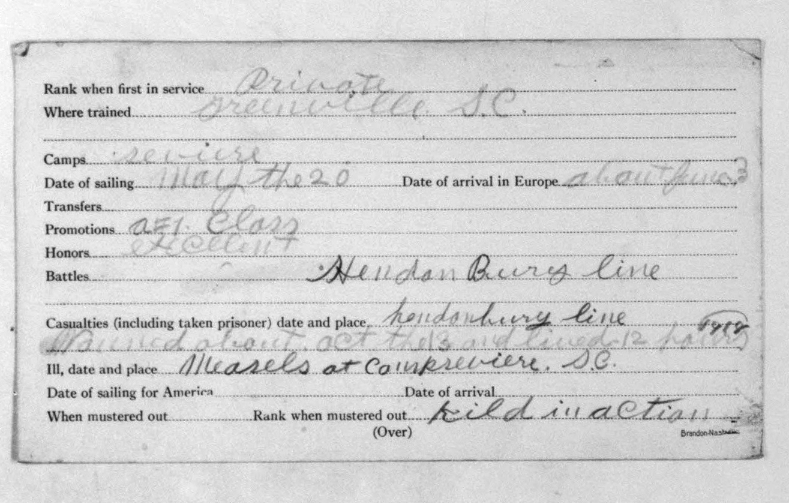 Rank when first in service Private
Where trained Greenville S.C.
Camps seviere
Date of sailing May the 20 Date of arrival in Europe about June 3
Transfers
Promotions a=1. Class
Honors Excellent
Battles Hendon Burg line
Casualties (including taken prisoner) date and place hendonburg line
about oct the 13 and lived 12 hours 1918
Ill, date and place Measels at Campseviere. S.C.
Date of sailing for America Date of arrival
When mustered out Rank when mustered out Kild in action
(Over)
Brandon-Nashville